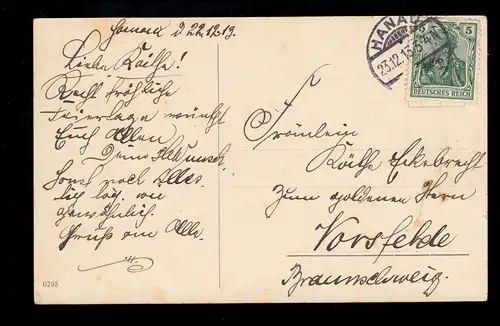 Hanau d 22.12.13.
Liebe Käthe!
Recht fröhliche
Feiertage wünscht
Euch Allen
Deine
Sonst noch Alles
wie
gewöhnlich.
Gruß an Alle.
0295
HANAU
23.12.13
5
DEUTSCHES REICH
Fräulein
Käthe Eckebrecht
Zum goldenen Stern
Vorsfelde
Braunschweig.